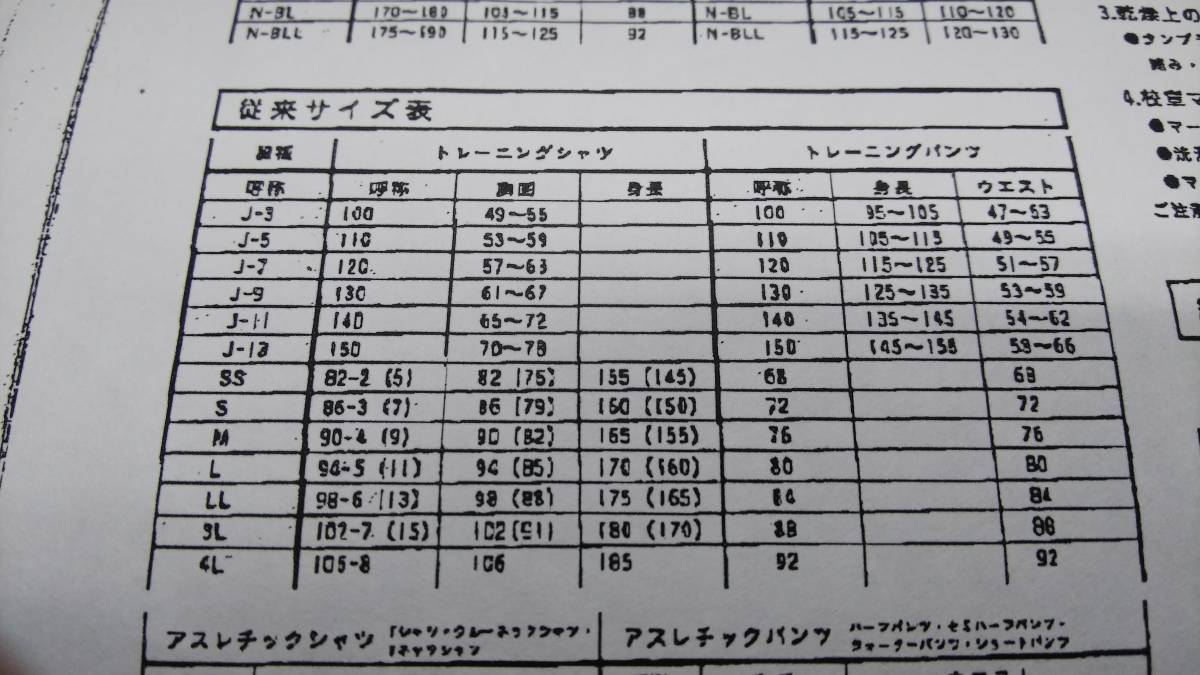 N-BL 170〜180 105〜115 88 N-BL 105〜115 110〜120
N-BLL 175〜190 115〜125 92 N-BLL 115〜125 120〜130
3.乾燥上の
●タンブ
4.校章マ
●マー
●洗
●マ
ご注
従来サイズ表
トレーニングシャツ トレーニングパンツ
呼称 呼称 胸囲 身長 呼称 身長 ウエスト
J-3 100 49〜55 100 95〜105 47〜53
J-5 110 53〜59 110 105〜115 49〜55
J-7 120 57〜63 120 115〜125 51〜57
J-9 130 61〜67 130 125〜135 53〜59
J-11 140 65〜72 140 135〜145 54〜62
J-13 150 70〜78 150 145〜155 58〜66
SS 82-2 (5) 82 (75) 155 (145) 68 68
S 86-3 (7) 86 (79) 160 (150) 72 72
M 90-4 (9) 90 (82) 165 (155) 76 76
L 94-5 (11) 94 (85) 170 (160) 80 80
LL 98-6 (13) 98 (88) 175 (165) 84 84
3L 102-7 (15) 102 (91) 180 (170) 88 88
4L 106-8 106 185 92 92
アスレチックシャツ アスレチックパンツ ハーフパンツ・セミハーフパンツ・
クォーターパンツ・ショートパンツ